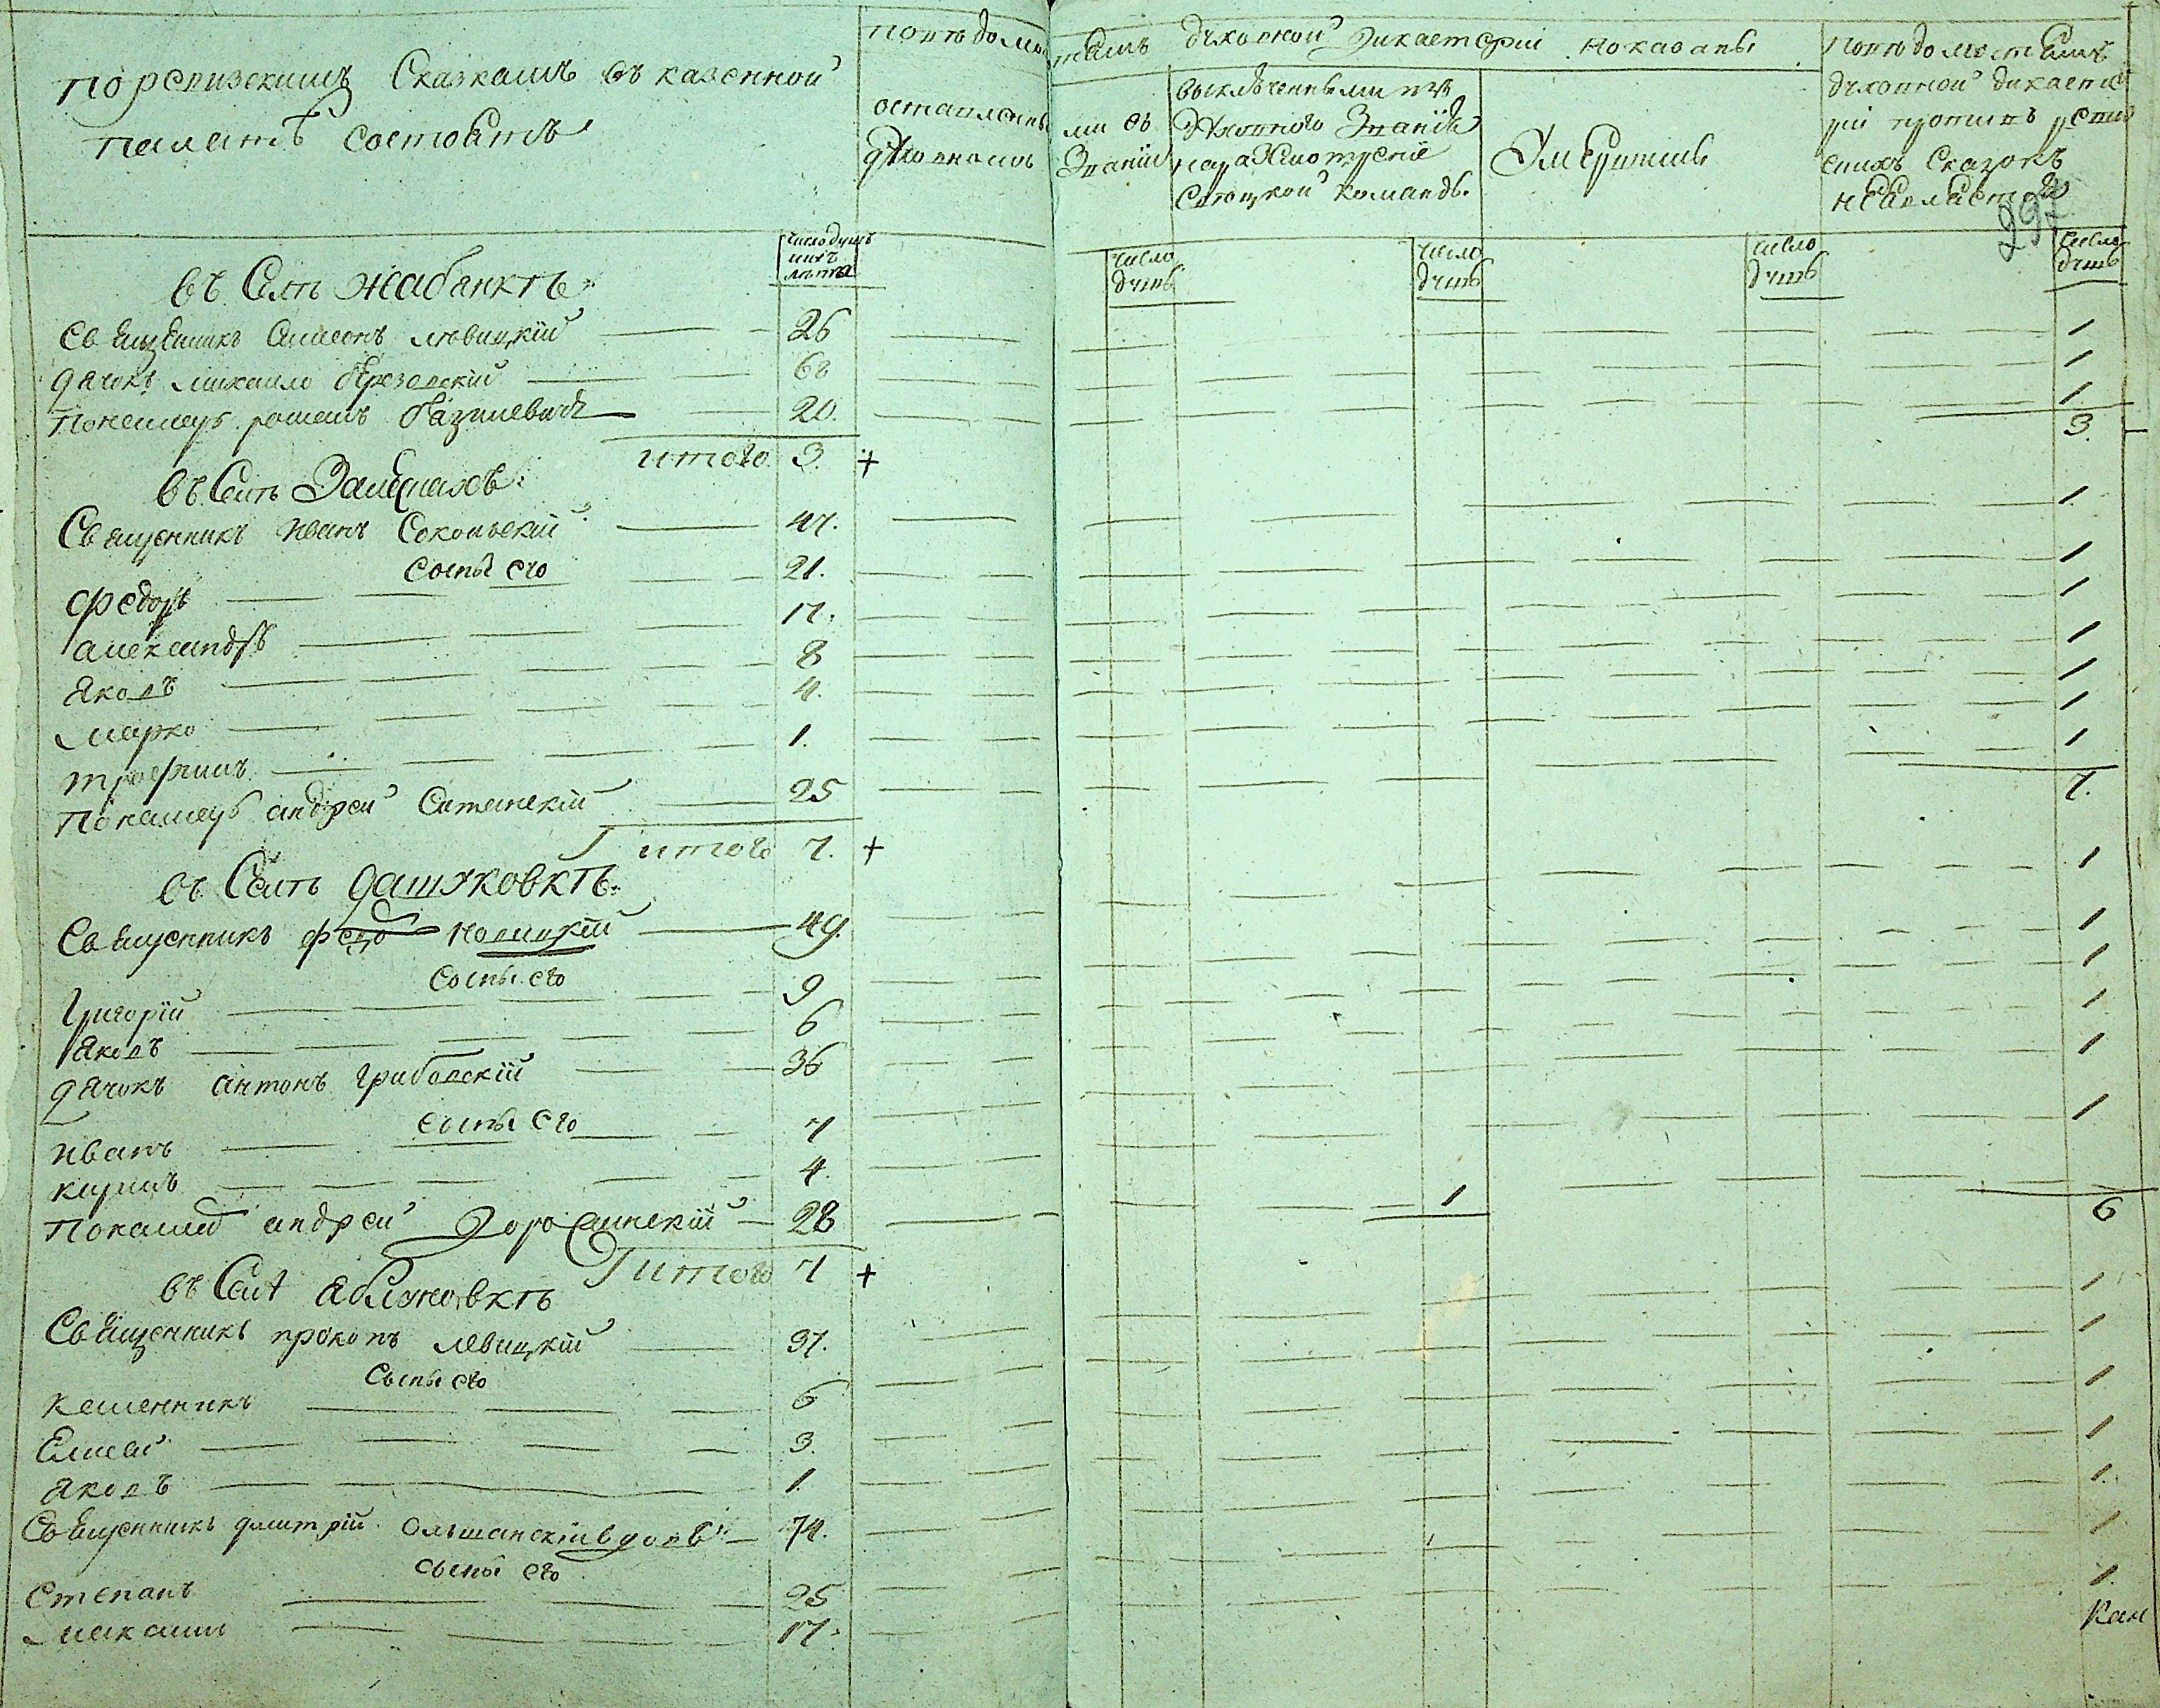 По ревизскимъ Сказкамъ въ казенной
палатѣ состоитъ
По вѣдомостямъ духовной дикастеріи показаны
оставленными въ
духовномъ Званіи
выключенными изъ
духовного Званія
на разсмотреніе
Свѣцкой команды
Умершими
По вѣдомостямъ
духовной дикастеріи
противъ ревизскихъ Сказокъ
неявляется
297
число душъ
ихъ
лѣта
число
душъ
число
душъ
число
душъ
число
душъ
въ Селѣ Жабянкѣ
Священникъ Симеонъ Левицкій 26 1
Дячокъ Михайло Березовский 68 1
Пономарь Романъ Базилевичъ 20. 1
итого 3. + 3.
въ Селѣ Залесцахъ
Священникъ Иванъ Сокольскій 47. 1
Сыны его
Федоръ 21. 1
Александръ 17. 1
Яковъ 8 1
Марко 4. 1
Трофимъ 1. 1
Пономарь Андрей Ситанскій 25 1
итого 7. + 7.
въ Селѣ Дашуковкѣ
Священникъ Федо Новицкій 49. 1
Сыны его
Григорій 9 1
Яковъ 6 1
Дячокъ Антонъ Грибовскій 36 1
Сыны его
Иванъ 7 1
Кирилъ 4. 1
Пономар Андрей Доросинскій 28 1
итого 7 + 6
въ Селѣ Яблуновкѣ
Священникъ Прокопъ Левицкій 37. 1
Сыны его
6 1
Елисей 3. 1
Яковъ 1. 1
Священникъ Дмитрій Ольшанскій вдовъ 74. 1
Сыны его
Степанъ 25 1
Максимъ 17. 1